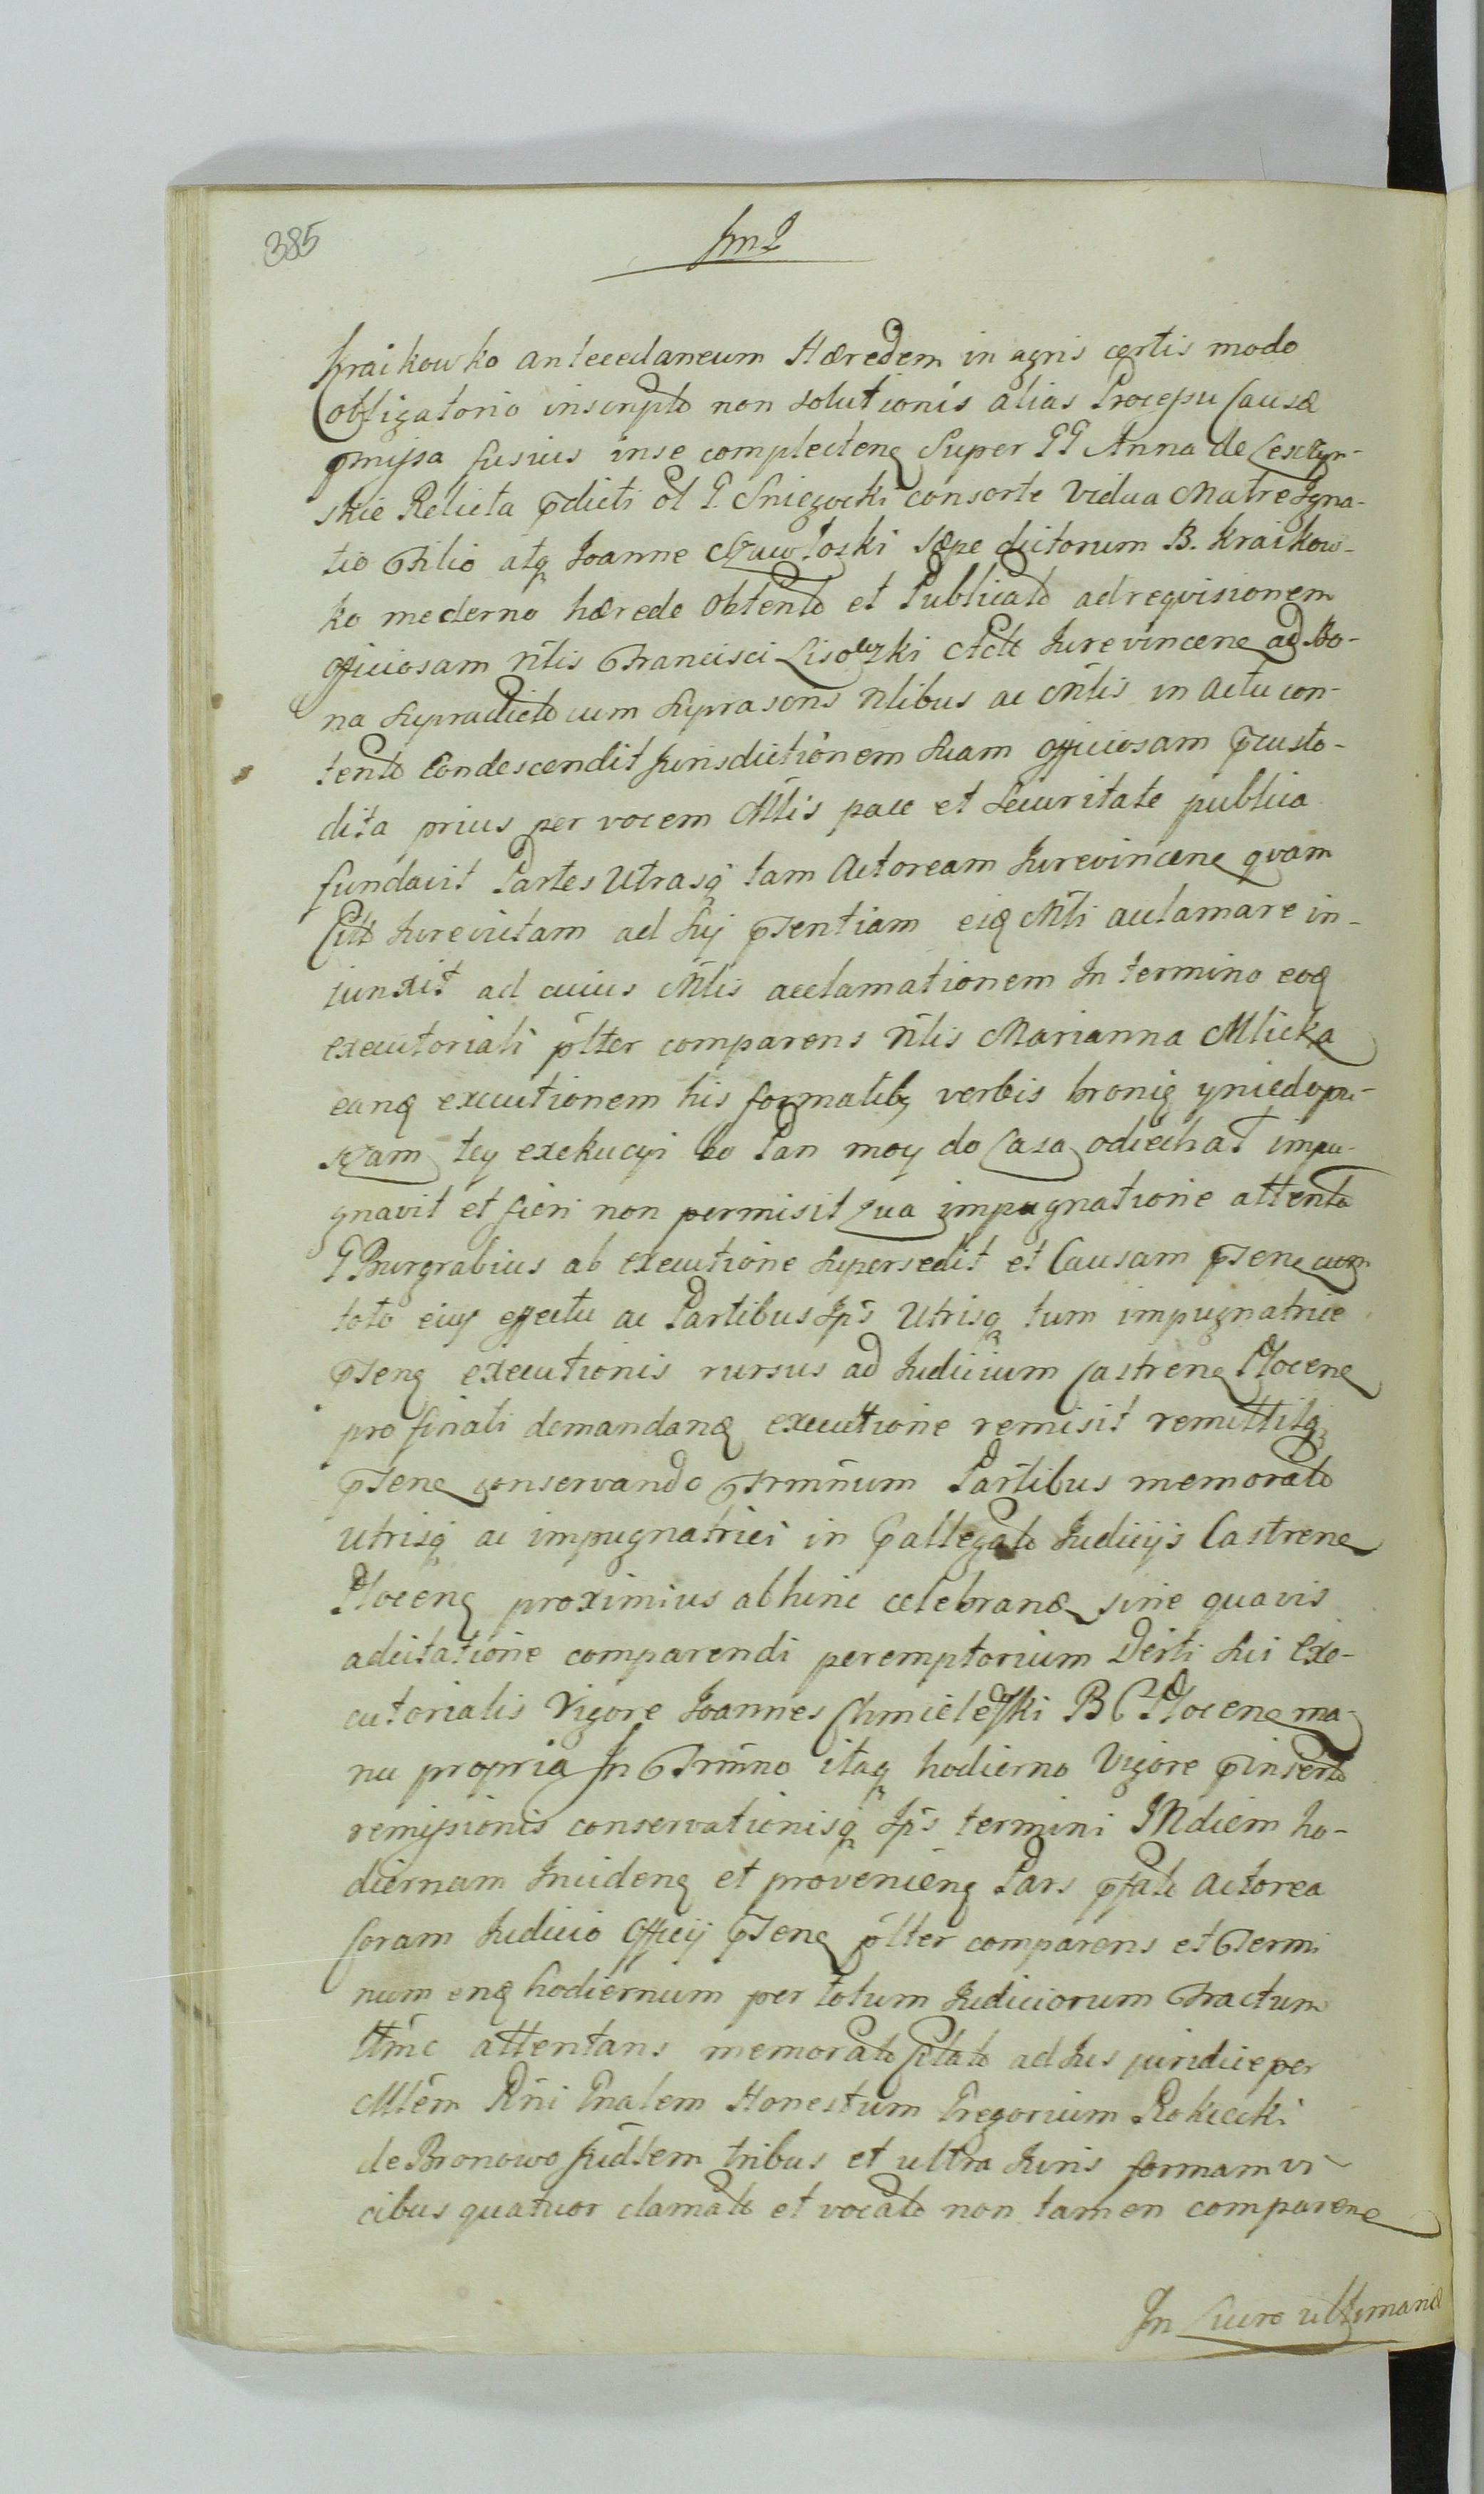 385
Kraikowko antecedaneum Hæredem in agris certis modo
obligatorio inscripto non solutionis alias Processu Causæ
pmissa fusius in se complecten Super GG Anna de
skie Relicta pdicti ol G. Sniegocki consorte Vidua Matre Igna-
tio Filio atq Joanne sæpe dictorum B. Kraikow-
ko moderno hærede obtento et Publicato ad reqvisionem
officiosam Nlis Francisci Lisowski Acte Jurevincen ad Bo-
na supradicto cum suprascris Nlibus ac Mlis in actu con-
tento Condescendit Jurisdictionem suam officiosam pcusto-
dita prius per vocem Mlis pace et securitate publica
fundavit Partes Utrasq tam Actoream Jurevincen qvam
Citto Jurevictam ad Sui psentiam eid Mli aclamare in-
iunxit ad cuius Mlis acclamationem In termino eod
executoriali plter comparens Nlis Marianna Mlicka
eand executionem his formalib verbis bronię y niedopu-
szam tey exekucyi bo Pan moy do Casa odiechał impu-
gnavit et fieri non permisit Qua impugnatione attenta
G Burgrabius ab executione supersedit et Causam psen cum
toto eius effectu ac Partibus Ips Utrisq tum impugnatrice
psen executionis rursus ad Judicium Castren Plocen
pro finali demandand executione remisit remittitq
psen conservando Terminum Partibus memorato
utrisq ac impugnatrici in pallegato Judicijs Castren
Plocen proximius abhinc celebrand sine quavis
adcitatione comparendi peremptorium Derti sui Exe-
cutorialis Vigore Joannes Chmielewski B C Plocen ma-
nu propria In Trmno itaq hodierno Vigore pinserto
remissionis conservationisq Ips termini IN diem ho-
diernam Inciden et provenien Pars pfate Actorea
coram Judicio Officij psen plter comparens et Termi
num eund hodiernum per totum Judiciorum Tractum
ttmc attentans memorato Citato ad Jus juridice per
Mlem Rni Gnalem Honestum Gregorium Rokicki
de Bronowo Judlem tribus et ultra Juris formam vi
cibus quatuor clamato et vocato non tamen comparen
In Lucro ultimand